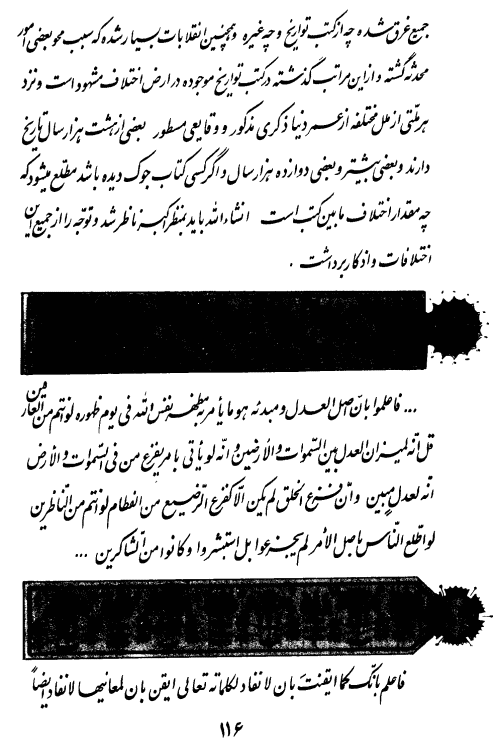 جمیع غرق شده چه از کتب تواریخ و چه غیره و همچنین انقلابات بسیار شده که سبب محو بعضی امور
محدثه گشته و از این مراتب گذشته در کتب تواریخ موجوده در ارض اختلاف مشهود است و نزد
هر ملّتی از ملل مختلفه از عمر دنیا ذکری مذکور و وقایعی مسطور بعضی از هشت هزار سال تاریخ
دارند و بعضی بیشتر و بعضی دوازده هزار سال و اگر کسی کتاب جوک دیده باشد مطّلع میشود که
چه مقدار اختلاف ما بین کتب است انشاء الله باید بمنظر اکبر ناظر شد و توجّه را از جمیع این
اختلافات و اذکار برداشت .
... فاعلموا بانّ اصل العدل و مبدئه هو ما یأمر به مظهر نفس الله فی یوم ظهوره لو انتم من العارفین
قل انّه لمیزان العدل بین السّموات و الأرضین و انّه لو یأتی بامر یفزع من فی السّموات و الأرض
انّه لعدل مبین و انّ فزع الخلق لم یکن الّا کفزع الرّضیع من الفطام لو انتم من النّاظرین
لو اطّلع النّاس باصل الأمر لم یجزعوا بل استبشروا و کانوا من الشّاکرین ...
فاعلم بانّک کما ایقنت بان لا نفاد لکلماته تعالی ایقن بان لمعانیها لا نفاد ایضاً
۱۱۶